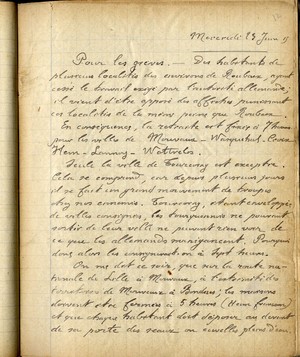 Mercredi 23 Juin
Pour les grèves. — Des habitants de
plusieurs localités des environs de Roubaix, ayant
cessé le travail exigé par l'autorité allemande,
il vient d'être apposé des affiches punissant
ces localités de la même peine que Roubaix.
En conséquence, la retraite est fixée à 7 heures
pour les villes de Mouvaux - Wasquehal - Croix
Hem - Lannoy - Wattrelos.
Seule la ville de Tourcoing est exceptée
cela se comprend, car depuis plusieurs jours
il se fait un grand mouvement de troupes
chez nos ennemis. Tourcoing, étant enveloppé
de villes consignées, les tourquennois ne pouvant
sortir de leur ville ne peuvent rien voir de
ce que les allemands manigancent. Pourquoi
donc alors les
On me dit ce soir que sur la route na-
tionale de Lille à Mouvaux, à l'extrémité des
de Mouvaux à Bondues, les maisons
doivent être fermées à 5 heures (Heure française)
et que chaque habitant doit déposer au devant
de sa porte des seaux ou cuvelles pleins d'eau